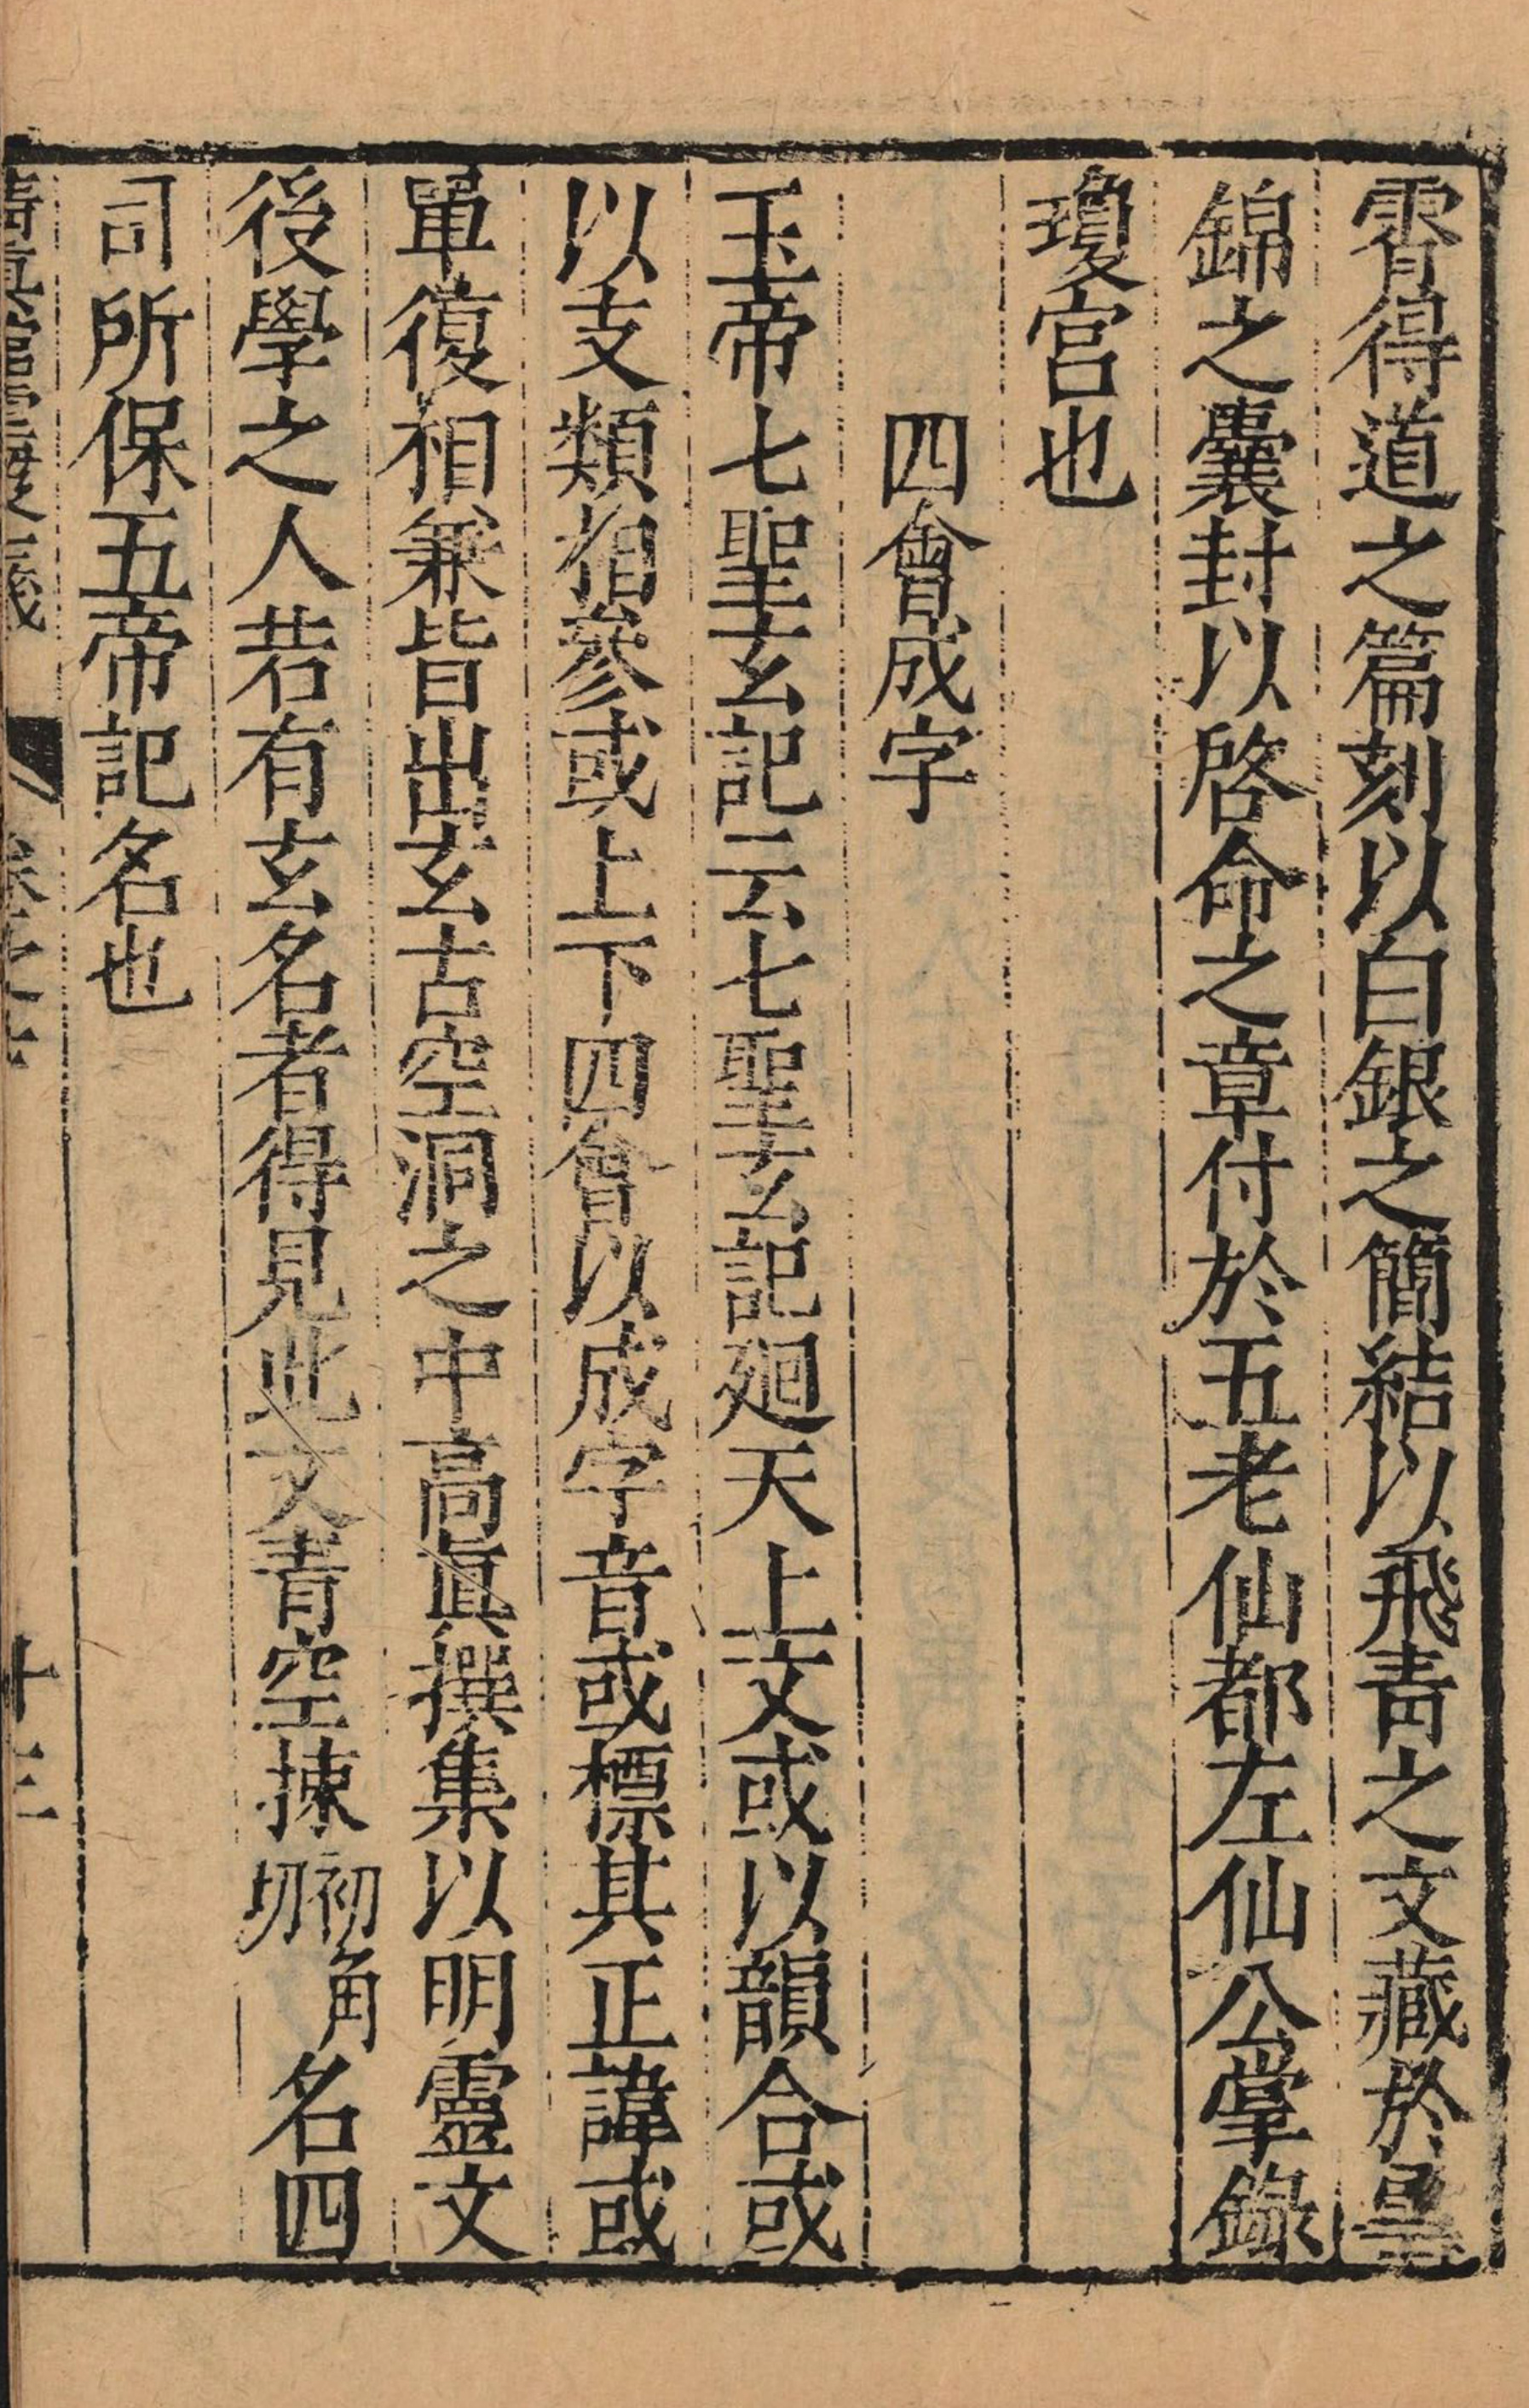 霄得道之篇刻以白銀之簡結以飛青之文藏於
錦之囊封以啓命之章付於五老仙都左仙公掌錄
瓊宮也
四會成字
玉帝七聖玄記云七聖玄記廻天上文或以韻合或
以支類相參或上下四會以成字音或標其正諱或
單復相兼皆出玄古空洞之中高眞撰集以明靈文
後學之人若有玄名者得見此文青空拺初角切名四
司所保五帝記名也
十三